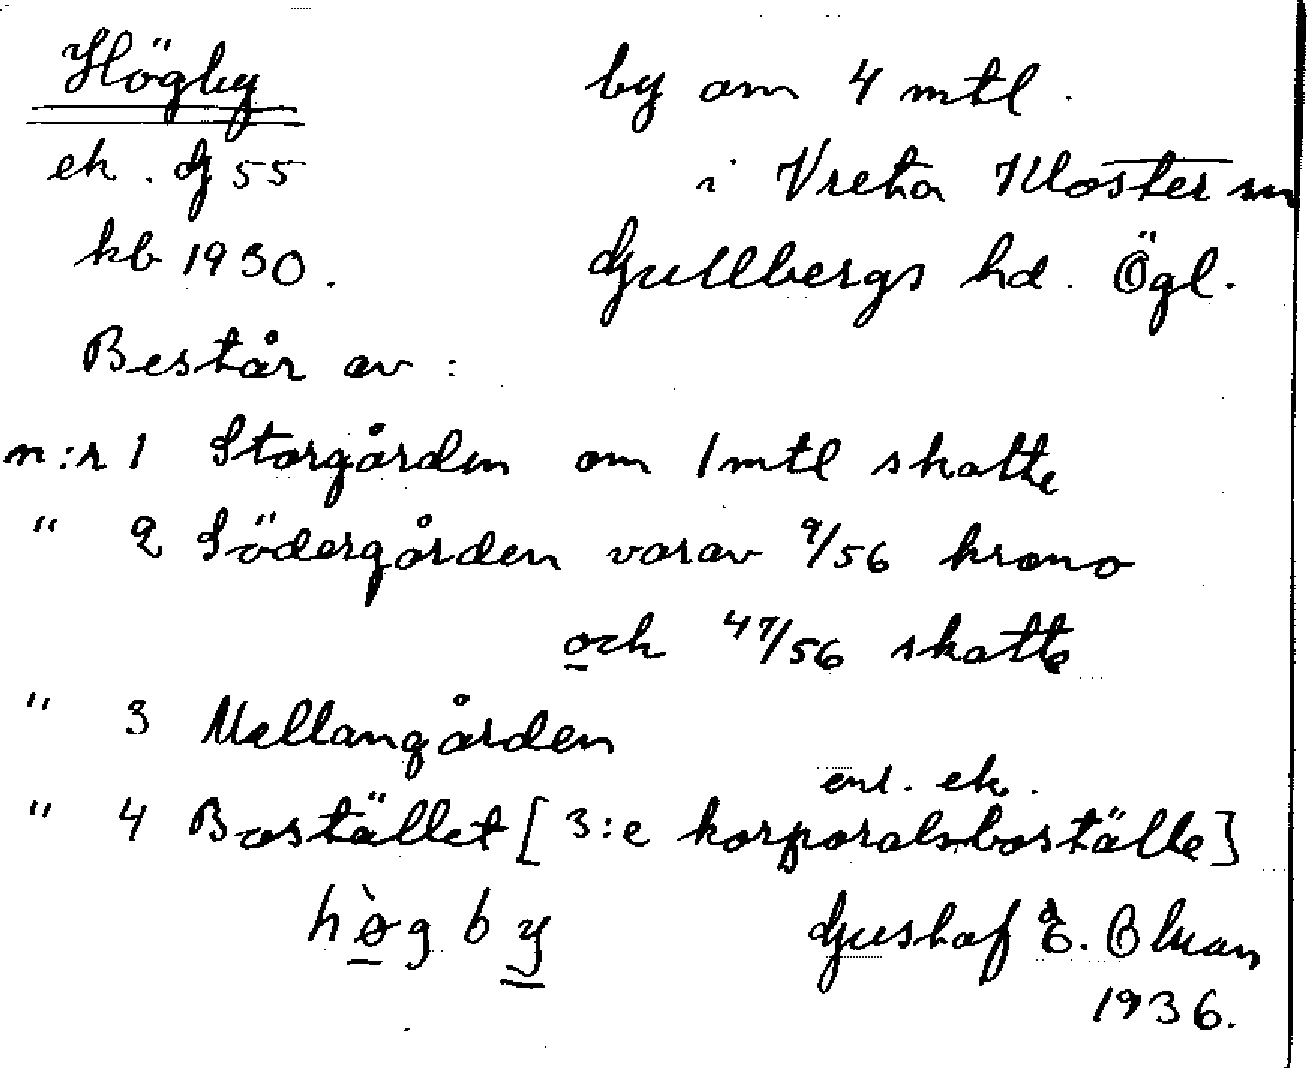 Högby
by om 4 mtl.
ek. G 55
i Vreta Kloster sn
kb 1930.
Gullbergs hd. Ögl.
Består av:
n:r 1 Storgården om 1 mtl skatte
" 2 Södergården varav 9/56 krono
och 47/56 skatte
" 3 Mellangården
enl. ek.
" 4 Bostället [3:e korporalsboställe]
hø̀g by
Gustaf E.
1936.